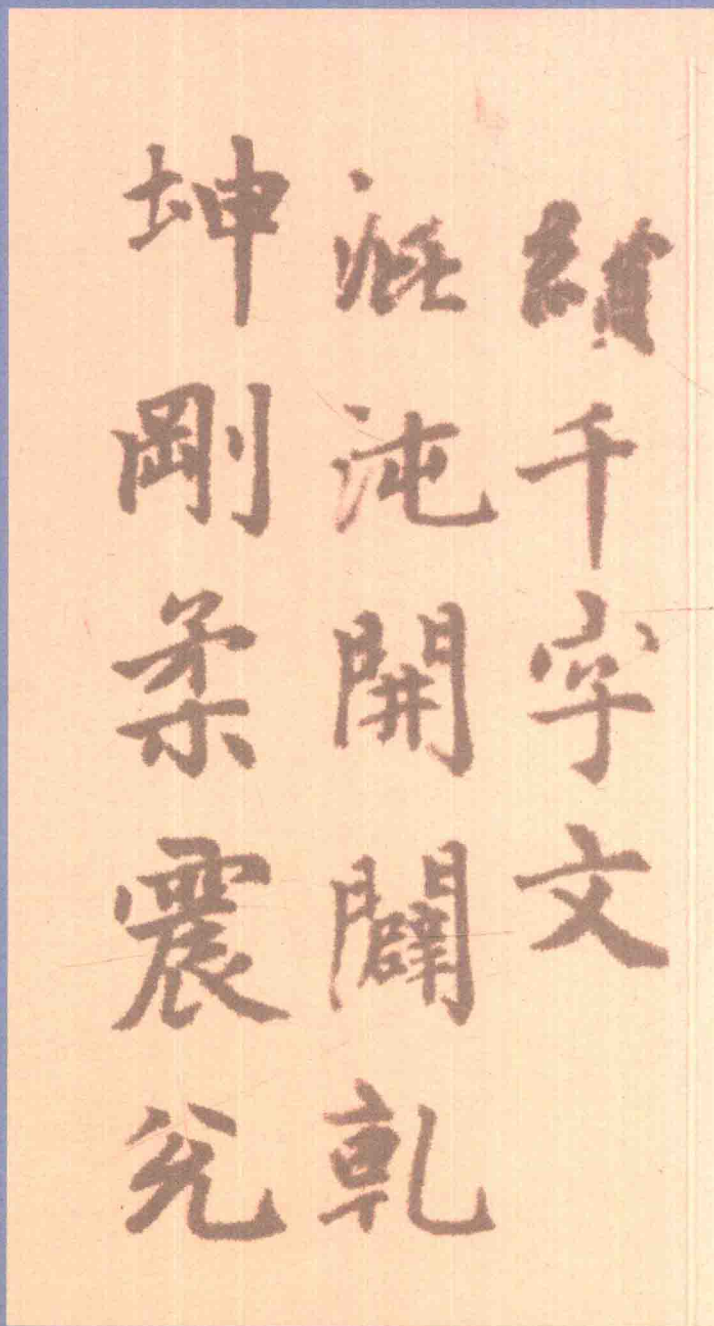 續千字文
混沌開闢乾
坤剛柔震兌